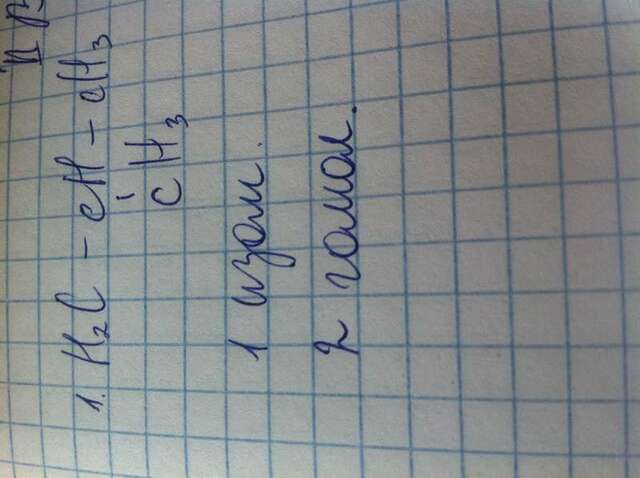 1. H₂C - CH - CH₃
CH₃
1 изом.
2 гомол.